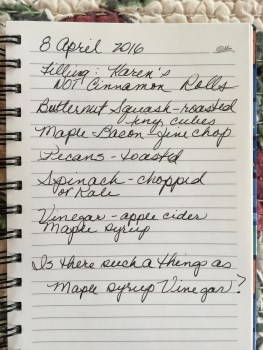 8 April 2016
Filling: Karen's
NOT Cinnamon Rolls
Butternut Squash - roasted
tiny cubes
Maple Bacon - fine chop
Pecans - toasted
Spinach - chopped
or Kale
Vinegar - apple cider
Maple syrup
Is there such a things as
Maple Syrup Vinegar?